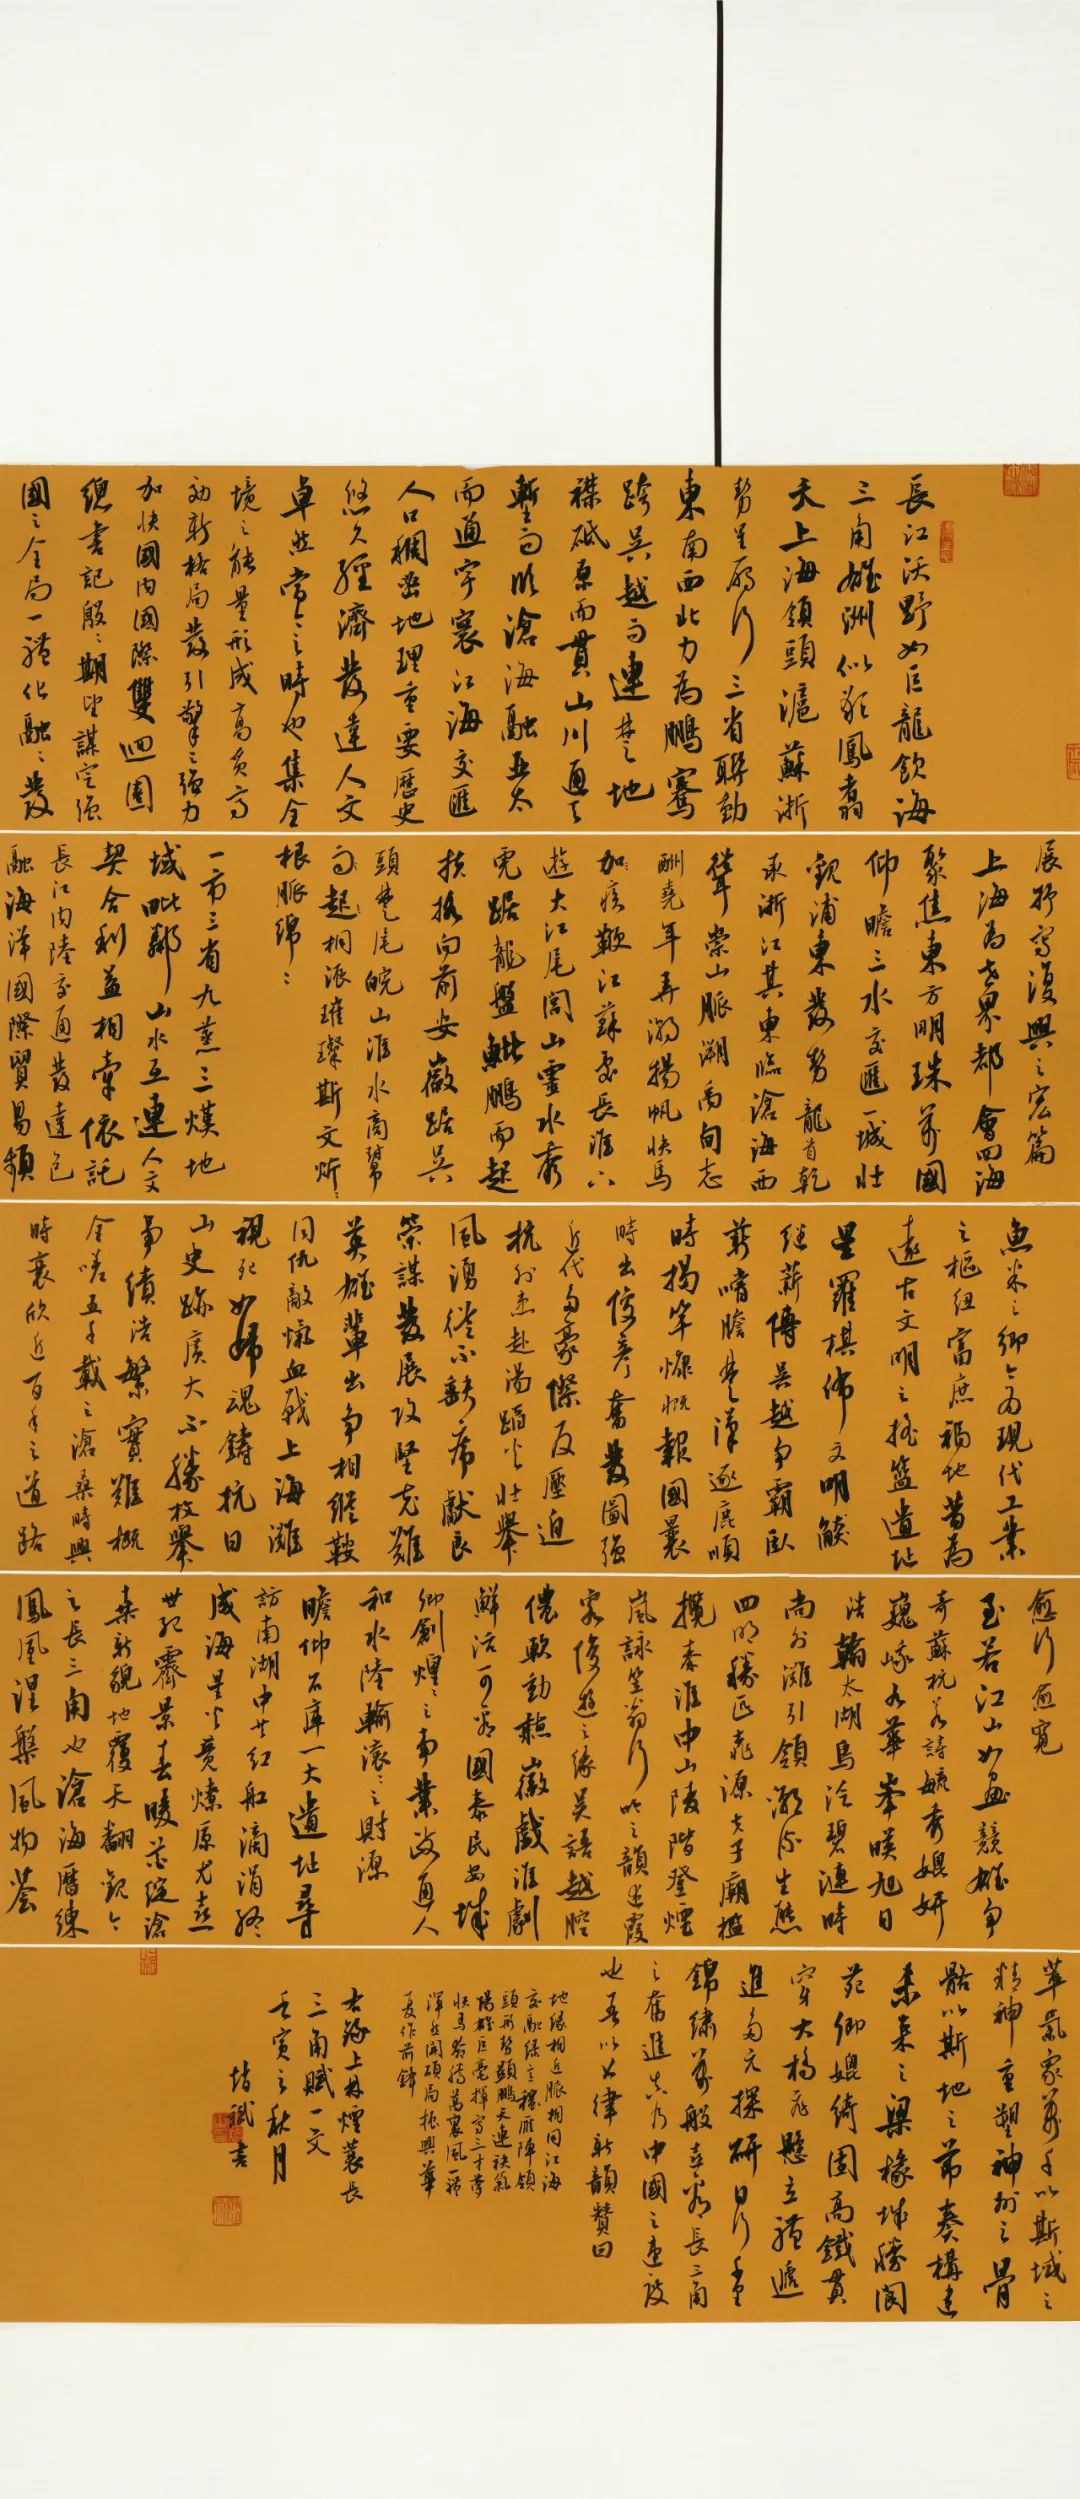 長江沃野如巨龍飲海
三角雄洲似彩鳳翥
天上海領頭滬蘇浙
勢呈雁行三省聯動
東南西北力為鵬騫
跨吳越而連楚地
襟砥原而貫山川通天
塹而際滄海融亞太
而通宇寰江海交匯
人口稠密地理重要歷史
悠久經濟發達人文
卓然當今之時也集全
境之能量形成高質高
効新格局發引擎之強力
加快國內國際雙迴圈
總書記殷殷期望謀定強
國之全局一體化融融發
展抒寫復興之宏篇
上海為世界都會四海
聚焦東方明珠萬國
仰瞻三水交匯一城壯
觀浦東發勢龍首乾
承浙江其東臨滄海西
聳崇山脈溯禹甸志
酬堯年弄潮揚帆快馬
加疾鞭江蘇處長淮六
遊大江尾閭山靈水秀
虎踞龍盤鯤鵬而起
扶搖向前安徽踞吳
頭楚尾皖山淮水商幫
而起桐派璀璨斯文炘炘
根脈綿綿
一市三省九蒸三熯地
域毗鄰山水互連人文
契合利益相牽依託
長江內陸交通發達包
融海洋國際貿易頻
魚米之鄉今為現代工業
之樞紐富庶福地昔為
遠古文明之搖籃遺址
星羅棋佈文明賡
繼薪傳吳越爭霸臥
薪嚐膽楚漢逐鹿順
時揭竿慷慨報國曩
時出俊彥奮發圖強
近代多豪傑反壓迫
抗外虜赴湯蹈火壯舉
風湧從不缺席獻良
策謀發展攻堅克難
英雄輩出爭相縱鞍
同仇敵愾血戰上海灘
視死如歸魂鑄抗日
山史跡廣大不勝枚舉
事績浩繁實難概
全嗟五千載之滄桑時興
時衰欣近百年之道路
愈行愈寬
至若江山如畫競雄爭
奇蘇杭若詩毓秀媲妍
巍峨九華峯暎旭日
浩瀚太湖鳥泛碧漣時
尚外灘引領潮流生態
四明勝匹桃源夫子廟檻
攬秦淮中山陵階登煙
嵐詠笠翁行吟之韻步霞
客俊遊之緣吳語越腔
儂軟動聽徽戲淮劇
鮮活可看國泰民安城
鄉創煌煌之事業政通人
和水陸輪滾滾之財源
瞻仰石庫一大遺址尋
訪南湖中共紅船滴涓終
成海星火竟燎原尤喜
世紀霽景春暖蕊綻滄
桑新貌地覆天翻觀今
之長三角也滄海曆練
鳳凰涅槃風物薈
萃氣象萬千以斯域之
精神重塑神州之骨
骼以斯地之節奏構建
未來之梁椽城勝閬
苑鄉媲綺園高鐵貫
穿大橋飛懸立體遞
進多元探研日行千里
錦繡萬般喜看長三角
之奮進真乃中國之建設
也吾以七律新韻贊曰
地緣相近脈相同江海
交融綠意穠雁陣領
頭形勢顯鵬天連袂氣
場雄巨毫揮寫三才夢
快馬奔騰萬裏風一體
渾然開碩局振興華
夏作前鋒
右錄上林煙蓑長
三角賦一文
壬寅之秋月